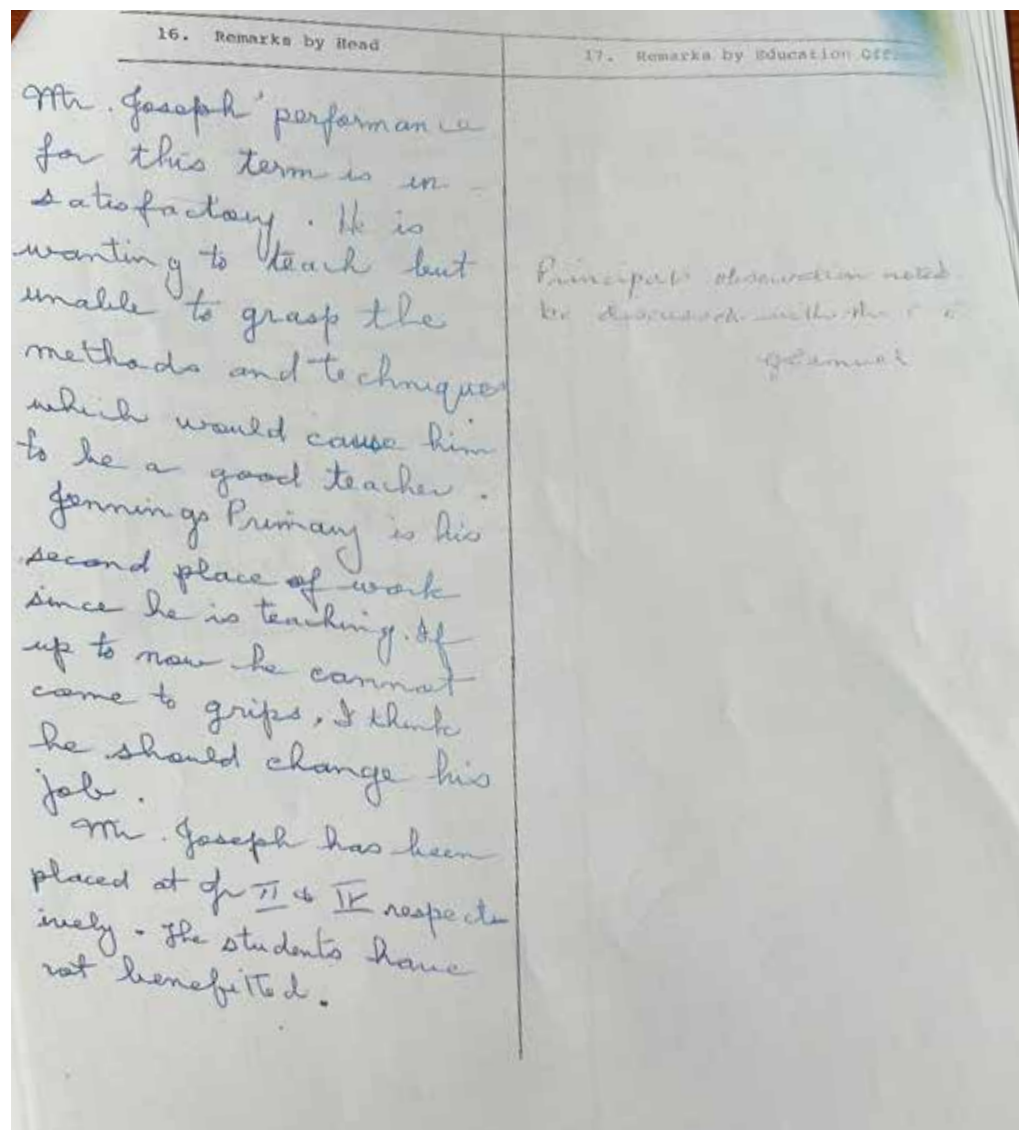 16. Remarks by Head
Mr. Joseph' performance
for this term is in -
satisfactory. He is
wanting to teach but
unable to grasp the
methods and techniques
which would cause him
to be a good teacher.
Jennings Primary is his
second place of work
since he is teaching. If
up to now he cannot
come to grips, I think
he should change his
job.
Mr. Joseph has been
placed at Gr II & IV respect
ively. The students have
not benefitted.
17. Remarks by Education Off
Principal's observation noted
be with the